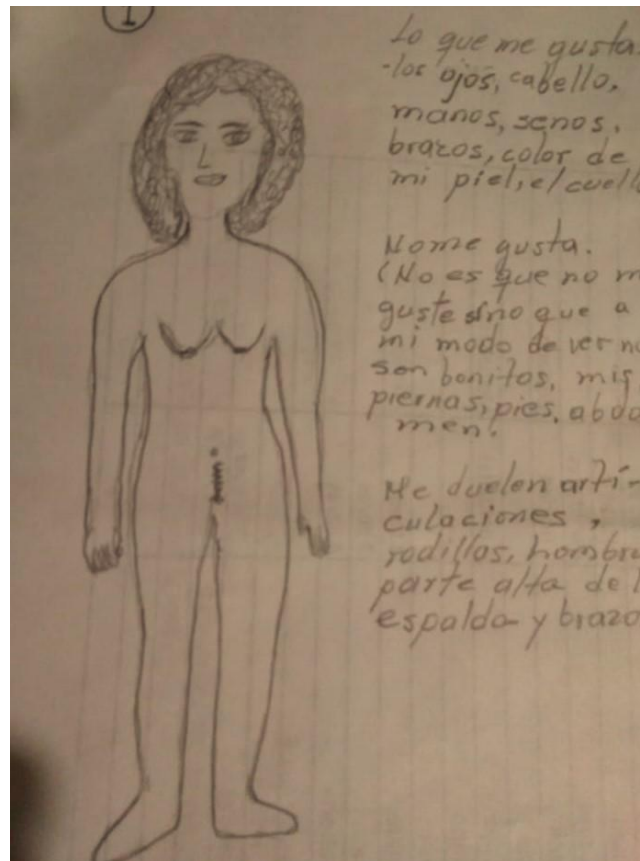 1
Lo que me gusta.
-los ojos, cabello,
manos, senos,
brazos, color de
mi piel, el cuell
No me gusta.
(No es que no m
guste sino que a
mi modo de ver no
son bonitos, mis
piernas, pies, abdo
men.
Me duelen artí-
culaciones,
rodillas, hombro
parte alta de l
espalda y brazo